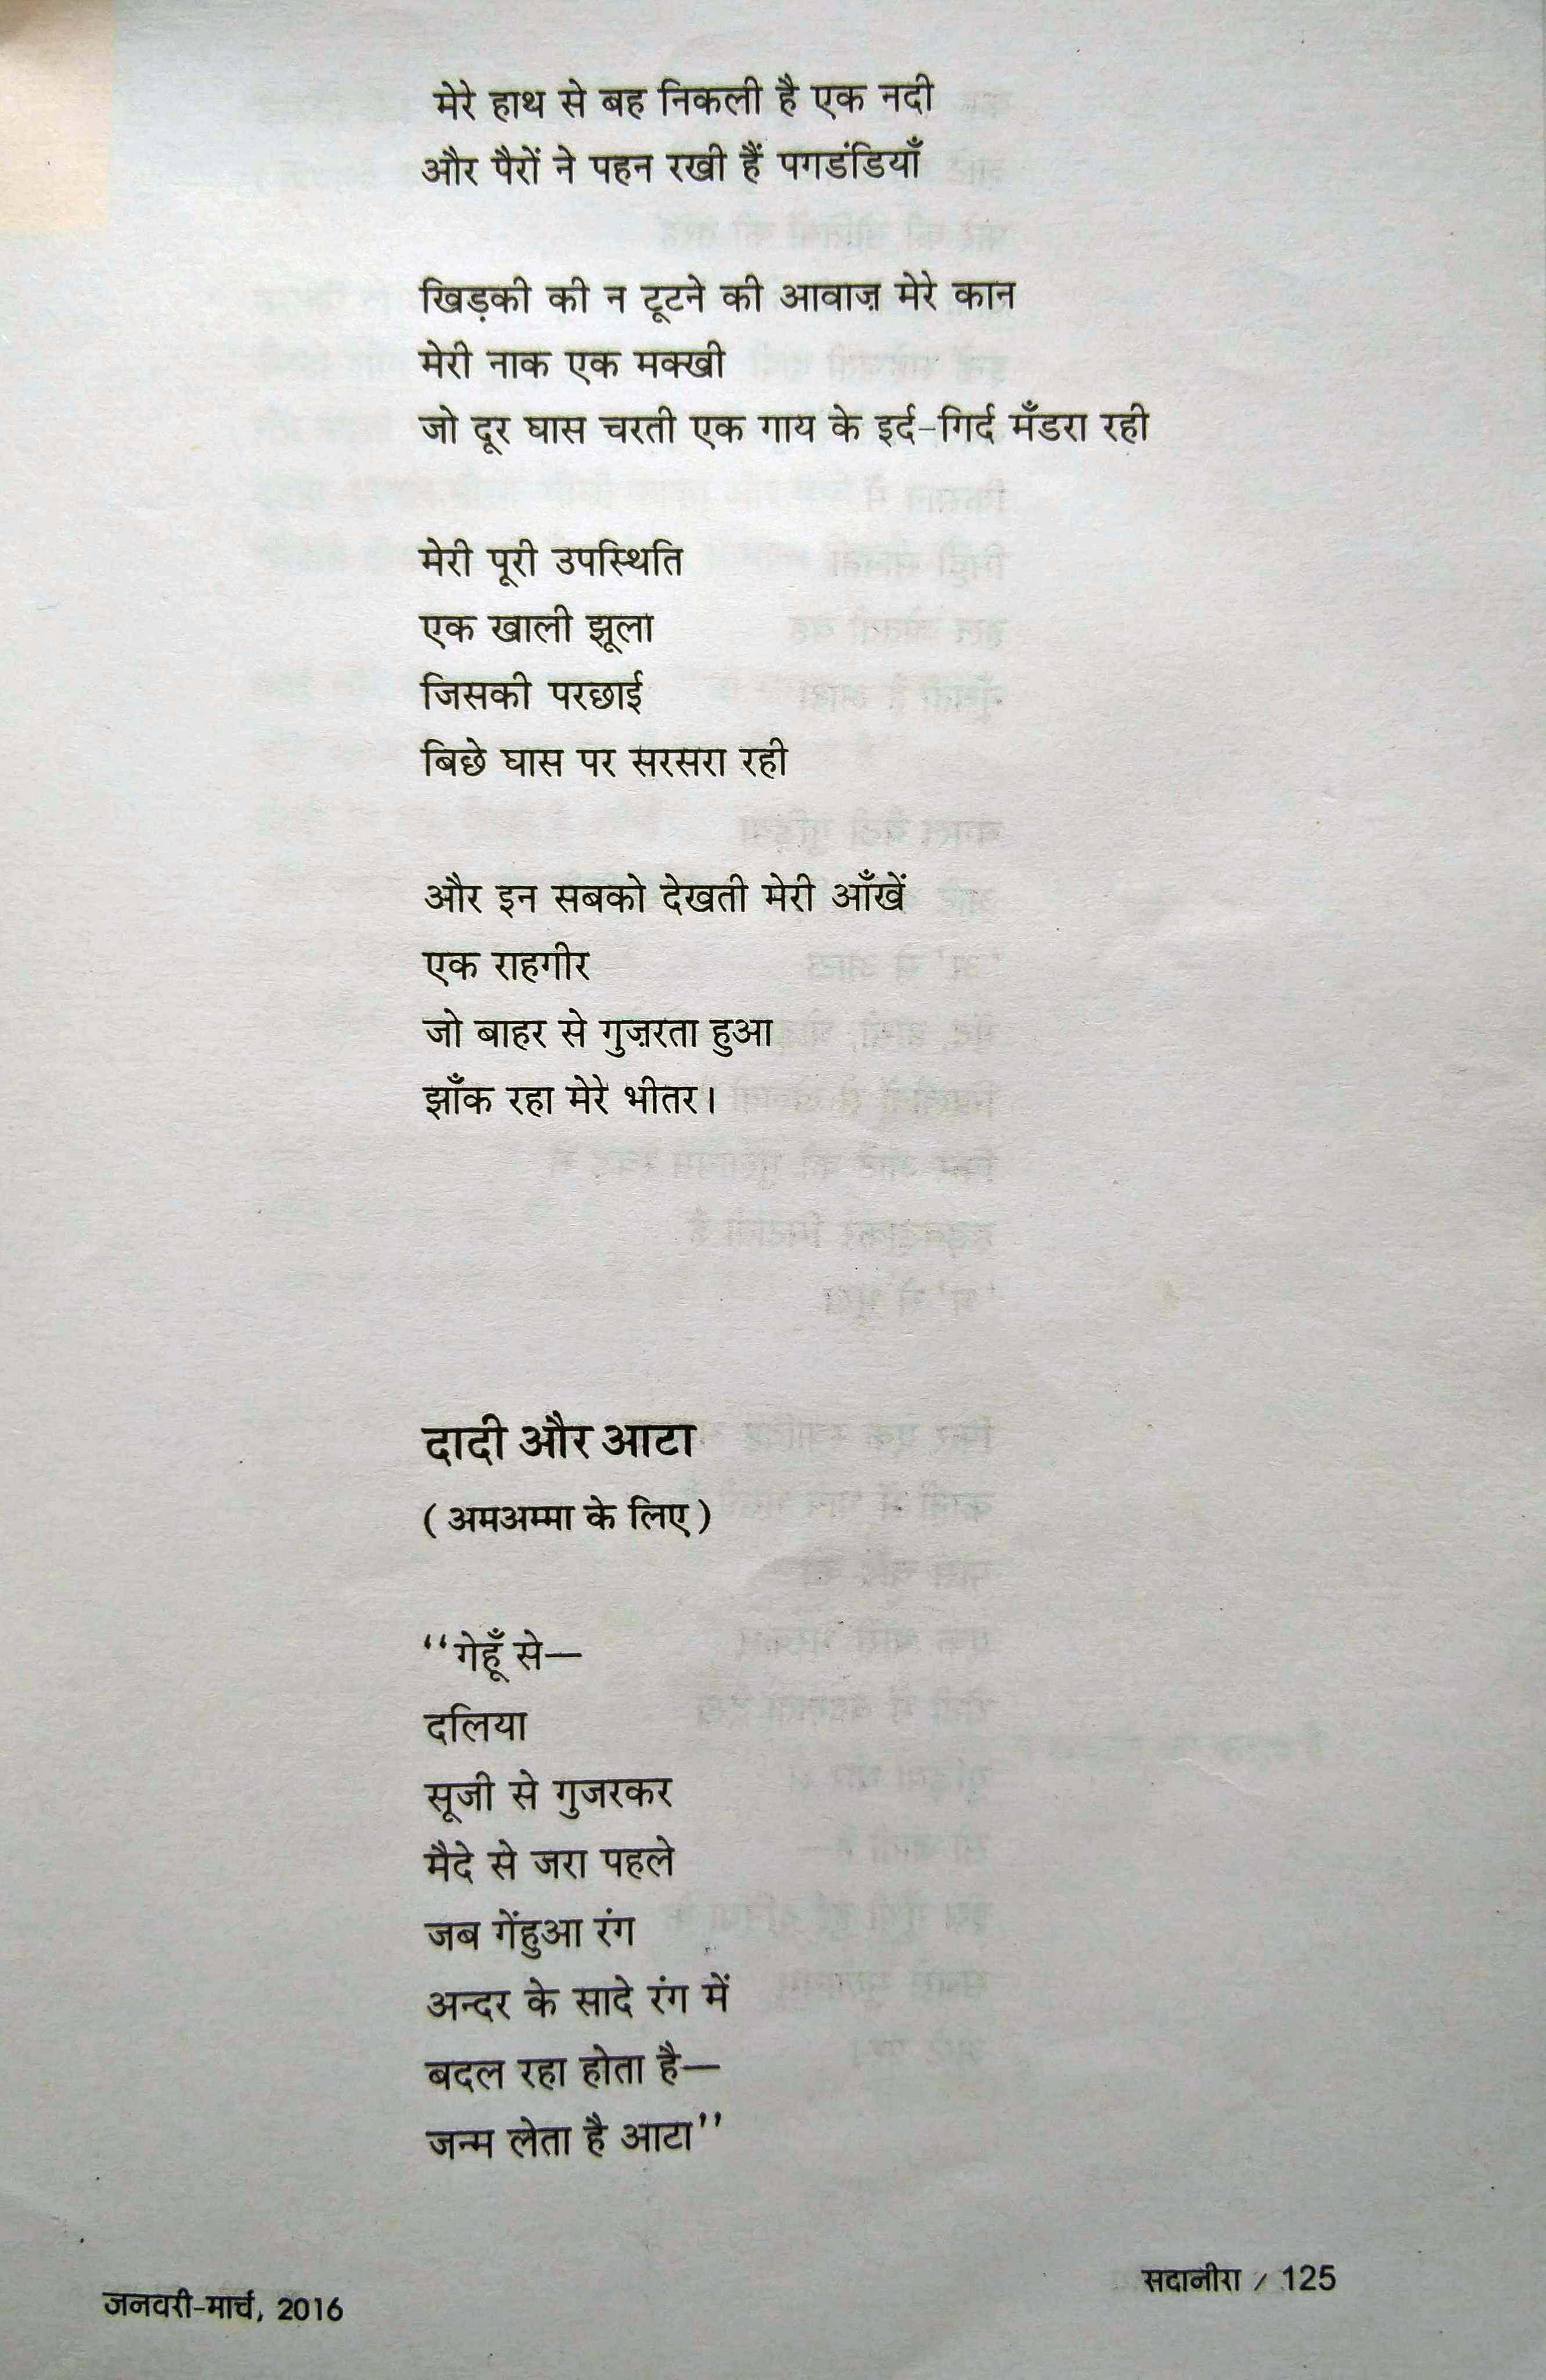 मेरे हाथ से बह निकली है एक नदी
और पैरों ने पहन रखी हैं पगडंडियाँ
खिड़की की न टूटने की आवाज़ मेरे कान
मेरी नाक एक मक्खी
जो दूर घास चरती एक गाय के इर्द-गिर्द मँडरा रही
मेरी पूरी उपस्थिति
एक खाली झूला
जिसकी परछाई
बिछे घास पर सरसरा रही
और इन सबको देखती मेरी आँखें
एक राहगीर
जो बाहर से गुज़रता हुआ
झाँक रहा मेरे भीतर।
दादी और आटा
(अमअम्मा के लिए)
‘‘गेहूँ से—
दलिया
सूजी से गुजरकर
मैदे से जरा पहले
जब गेंहुआ रंग
अन्दर के सादे रंग में
बदल रहा होता है—
जन्म लेता है आटा’’
जनवरी-मार्च, 2016
सदानीरा / 125